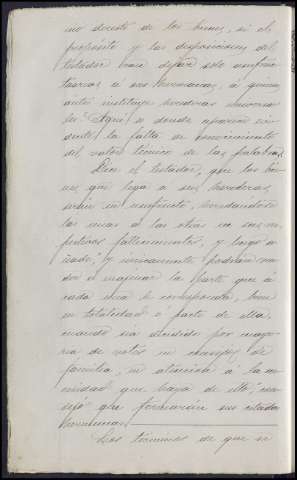 no directo de los bienes, si el
propósito y las disposiciones del
testador fuese dejar solo usufruc-
tuarias á sus hermanas, á quienes
antes instituye herederas universa-
les. Aquí es donde aparece evi-
dente la falta de conocimiento
del valor técnico de las palabras.
Dice el testador, que los bie-
nes que lega á sus herederas,
serán en usufructo, heredándose
las unas á las otras en sus res-
pectivos fallecimientos, y luego a-
ñade, "y únicamente podrán ven-
der ó enajenar la parte que á
cada una le corresponda, bien
en totalidad ó parte de ella,
cuando sea acordado por mayo-
ría de votos en consejo de
familia, en atención á la ne-
cesidad que haya de ello, con-
sejo que formarán sus citadas
hermanas.
Los términos de que se